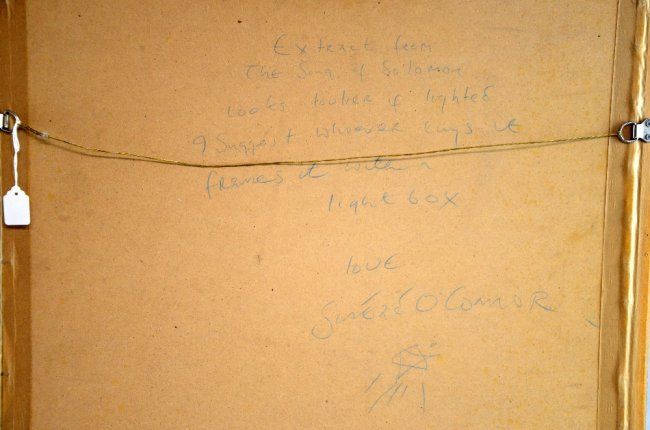 Extract from
The Song of Solomon
Looks if lighted
I suggest whoever buys it
frames it with a
light box
love
Sinéad O'Connor